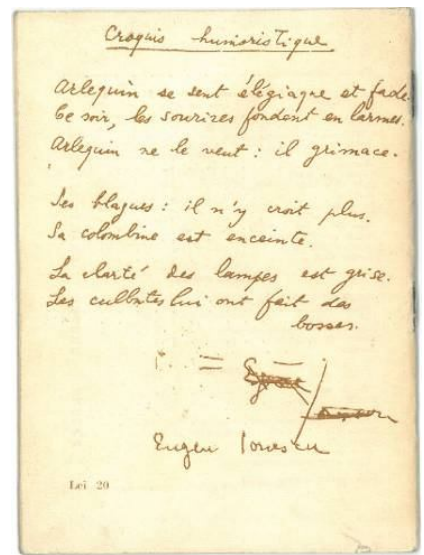 Croquis humoristique
Arlequin se sent élégiaque et fade.
Ce soir, les sourires fondent en larmes.
Arlequin ne le veut : il grimace.
Ses blagues : il n'y croit plus.
Sa colombine est enceinte.
La clarté des lampes est grise.
Les culbutes lui ont fait des
bosses.
Eugen Ionescu
Lei 20